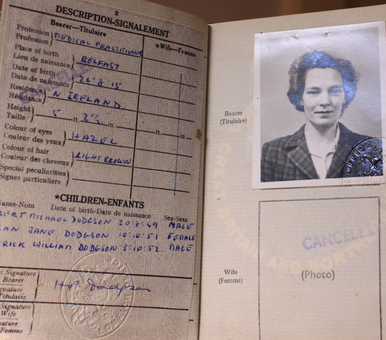 2
DESCRIPTION-SIGNALEMENT
Bearer—Titulaire
★Wife—Femme
Profession
Profession
MEDICAL PRACTITIONER
Place of birth
Lieu de naissance
BELFAST
Date of birth
Date de naissance
26·8·15
Residence
Résidence
N IRELAND
Height
Taille
5 ft. 2½ in.
ft. in.
Colour of eyes
Couleur des yeux
HAZEL
Colour of hair
Couleur des cheveux
LIGHT BROWN
Special peculiarities
Signes particuliers
★CHILDREN-ENFANTS
Name-Nom Date of birth-Date de naissance Sex-Sexe
MICHAEL DODGSON 20·8·49 MALE
JANE DODGSON 10·10·51 FEMALE
WILLIAM DODGSON 3·10·52 MALE
Signature
Bearer
Signature
Titulaire
Dodgson
Signature
Wife
Signature
Femme
Bearer
(Titulaire)
Wife
(Femme)
CANCELLE
(Photo)